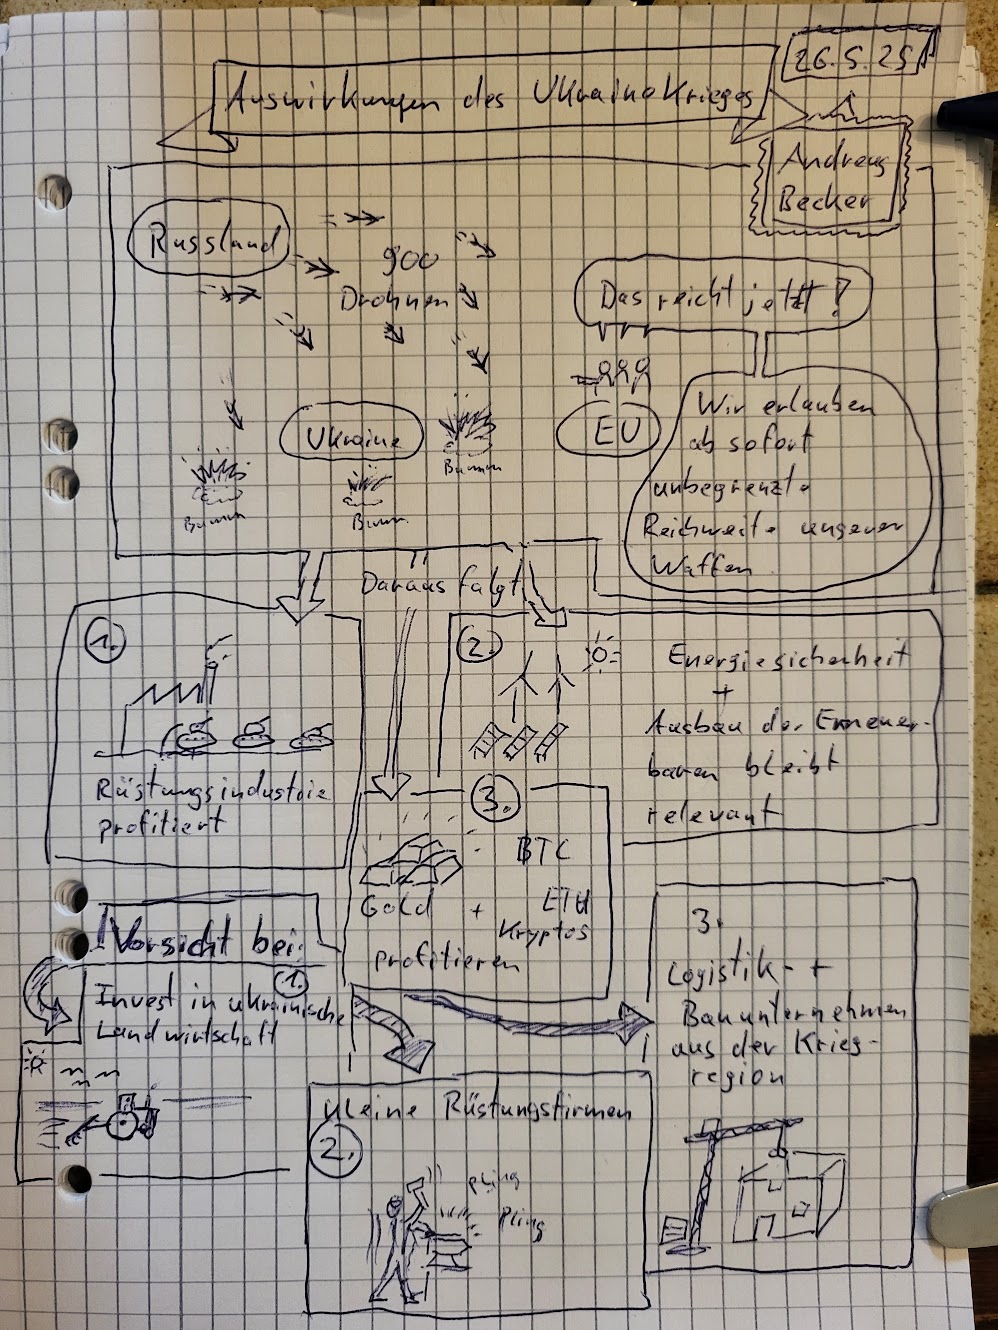 26.5.25
Auswirkungen des Ukrainekrieges
Andreas
Becker
Russland
900
Drohnen
Das reicht jetzt!
Ukraine
EU
Wir erlauben
ab sofort
unbegrenzte
Reichweite unserer
Waffen
Bumm
Bumm
Bumm
Daraus folgt
1.
Rüstungsindustrie
profitiert
2.
Energiesicherheit
+
Ausbau der Erneuer-
baren bleibt
relevant
3.
BTC
Gold + ETH
Kryptos
profitieren
Vorsicht bei:
1.
Invest in ukrainische
Landwirtschaft
Kleine Rüstungsfirmen
2.
pling
pling
3.
Logistik- +
Bauunternehmen
aus der Krieg-
region